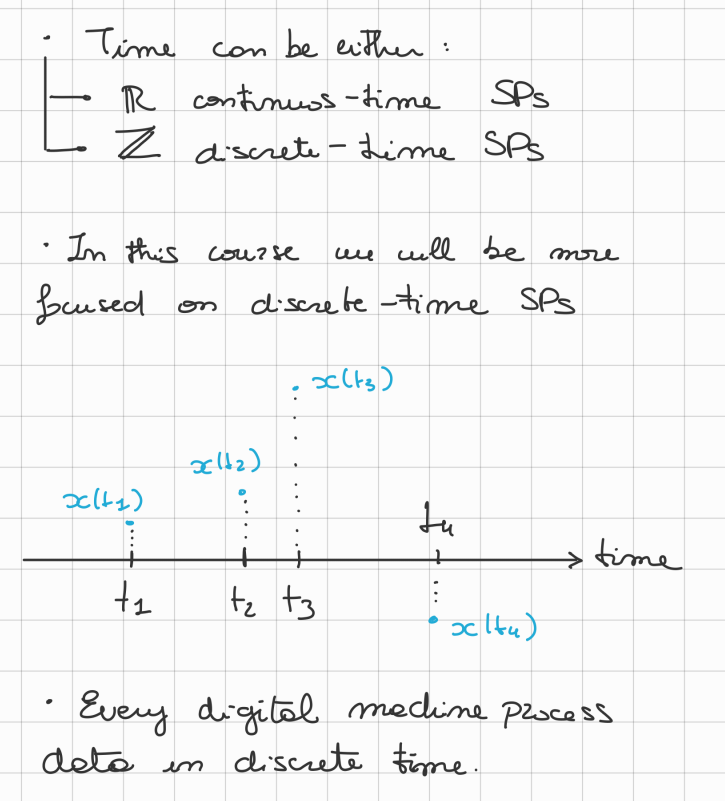 · Time can be either:
ℝ continuos-time SPs
ℤ discrete-time SPs
· In this course we will be more
focused on discrete-time SPs
x(t3)
x(t2)
x(t1)
t4
time
t1 t2 t3
x(t4)
· Every digital machine process
data in discrete time.